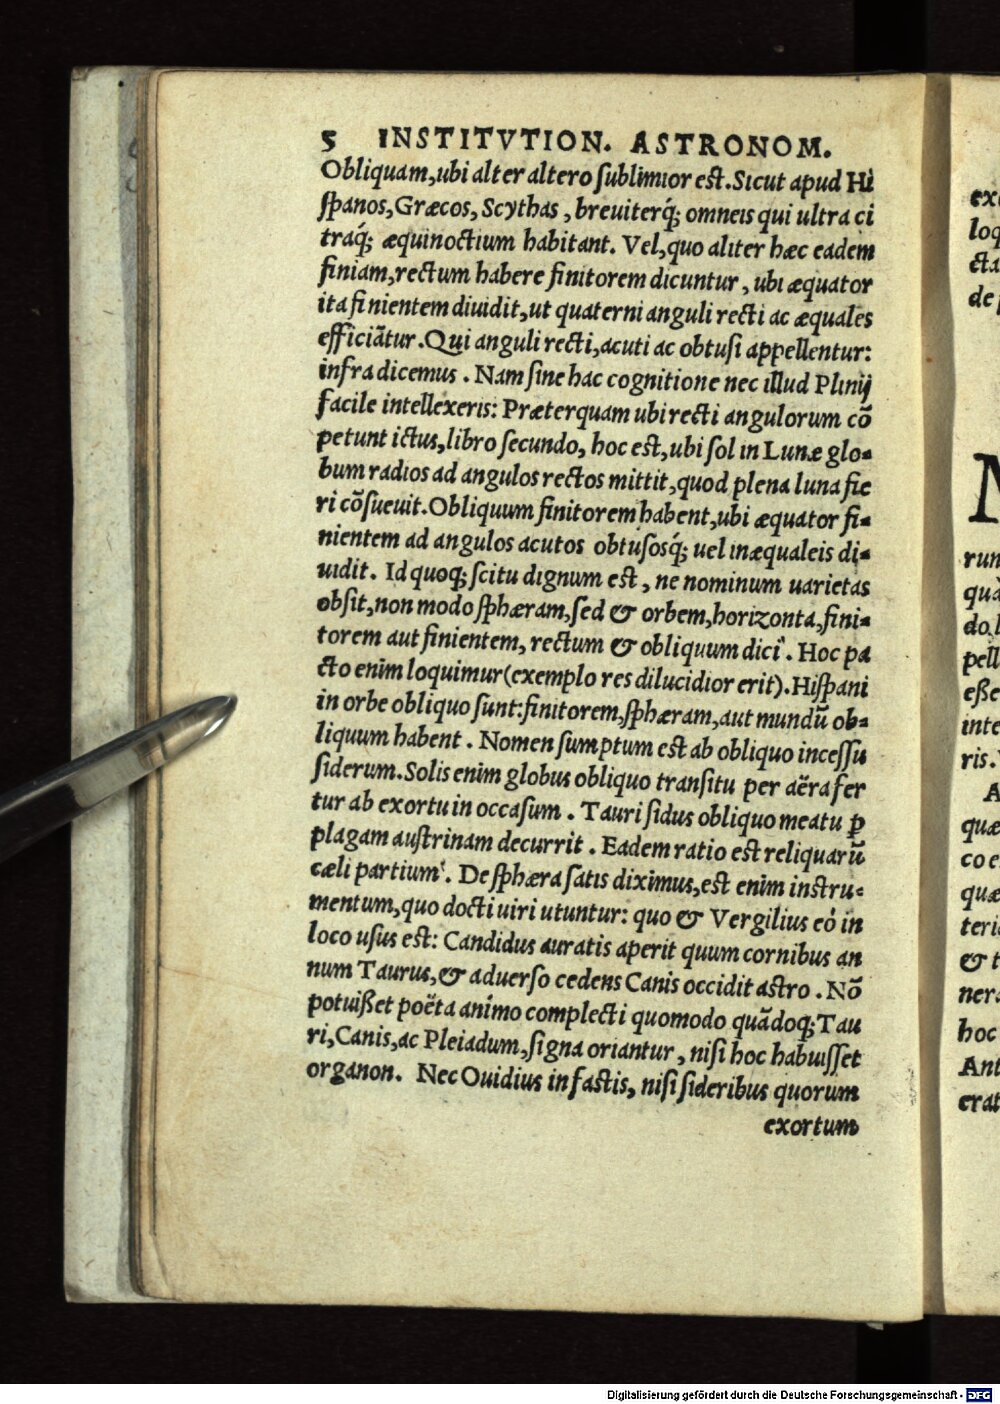 5 INSTITVTION. ASTRONOM.
Obliquam,ubi alter altero ſublimior eſt.Sicut apud Hi
ſpanos,Græcos, Scythas , breuiterq́; omneis qui ultra ci
traq́; æquinoctium habitant. Vel,quo aliter hæc eadem
finiam,rectum habere finitorem dicuntur , ubi æquator
ita finientem diuidit,ut quaterni anguli recti ac æquales
efficiãtur.Qui anguli recti,acuti ac obtuſi appellentur:
infra dicemus . Nam ſine hac cognitione nec illud Plinij
facile intellexeris: Præterquam ubi recti angulorum cõ
petunt ictus,libro ſecundo, hoc eſt,ubi ſol in Lunæ glo-
bum radios ad angulos rectos mittit,quod plena luna fie
ri cõſueuit.Obliquum finitorem habent,ubi æquator fi-
nientem ad angulos acutos obtuſosq́; uel inæqualeis di-
uidit. Id quoq; ſcitu dignum eſt , ne nominum uarietas
obſit,non modo ſphæram,ſed & orbem,horizonta,fini-
torem aut finientem, rectum & obliquum dici . Hoc pa
cto enim loquimur(exemplo res dilucidior erit).Hiſpani
in orbe obliquo ſunt:finitorem,ſphæram,aut mundũ ob-
liquum habent . Nomen ſumptum eſt ab obliquo inceſſu
ſiderum.Solis enim globus obliquo tranſitu per aëra fer
tur ab exortu in occaſum . Tauri ſidus obliquo meatu ꝑ
plagam auſtrinam decurrit . Eadem ratio eſt reliquarũ
cæli partium . De ſphæra ſatis diximus,eſt enim inſtru-
mentum,quo docti uiri utuntur: quo & Vergilius eò in
loco uſus eſt: Candidus auratis aperit quum cornibus an
num Taurus,& aduerſo cedens Canis occidit aſtro . Nõ
potuißet poëta animo complecti quomodo quãdoq; Tau
ri,Canis,ac Pleiadum,ſigna oriantur , niſi hoc habuiſſet
organon. Nec Ouidius in faſtis, niſi ſideribus quorum
exortum
exc
loq
cta
de
M
run
quà
do
pell
eße
inte
ris.
A
quæ
co e
quæ
teri
& t
nera
hoc
Ant
erat
Digitalisierung gefördert durch die Deutsche Forschungsgemeinschaft - DFG